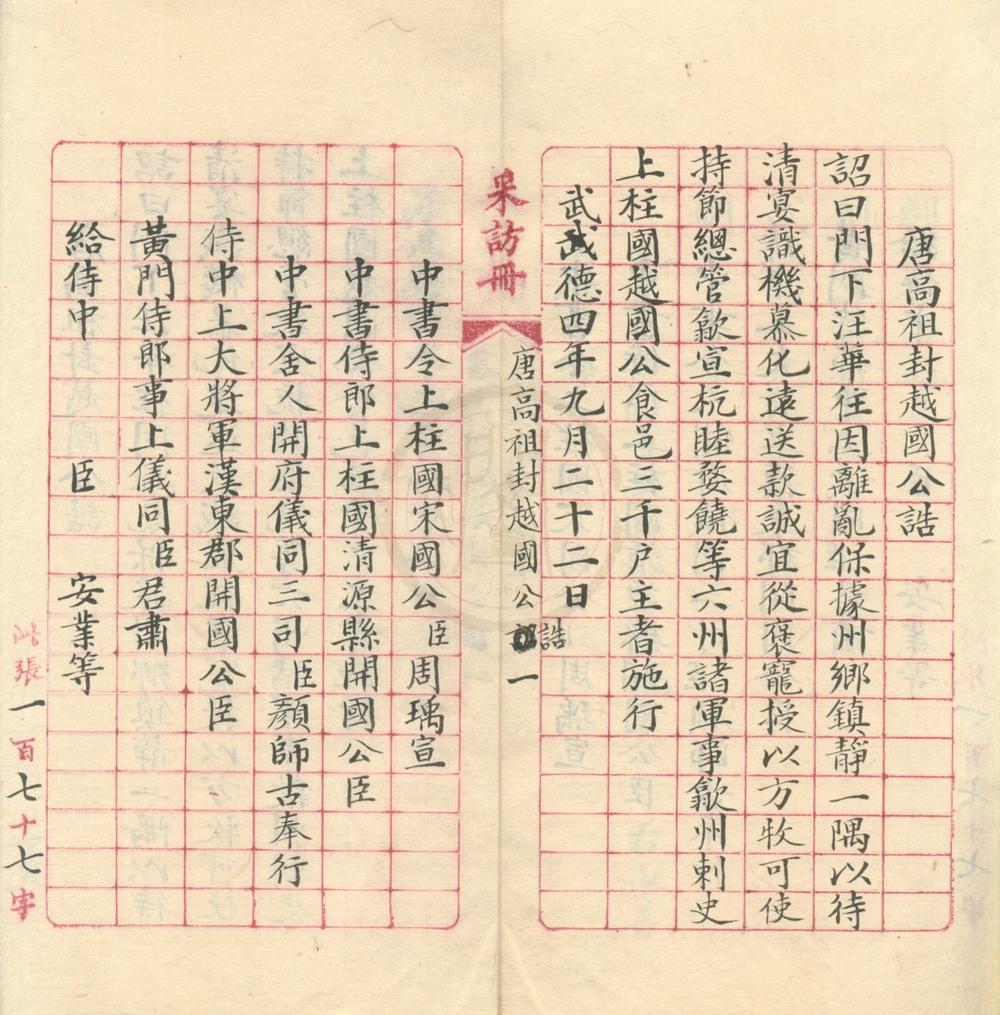 唐高祖封越國公誥
詔曰門下汪華往因離亂保據州鄉鎮靜一隅以待
清宴識機慕化遠送款誠宜從褒寵授以方牧可使
持節總管歙宣杭睦婺饒等六州諸軍事歙州刺史
上柱國越國公食邑三千户主者施行
武武德四年九月二十二日
采訪冊
唐高祖封越國公誥一
中書令上柱國宋國公臣周瑀宣
中書侍郎上柱國清源縣開國公臣
中書舍人開府儀同三司臣顏師古奉行
侍中上大將軍漢東郡開國公臣
黃門侍郎事上儀同臣君肅
給侍中　臣　安業等
此張一百七十七字